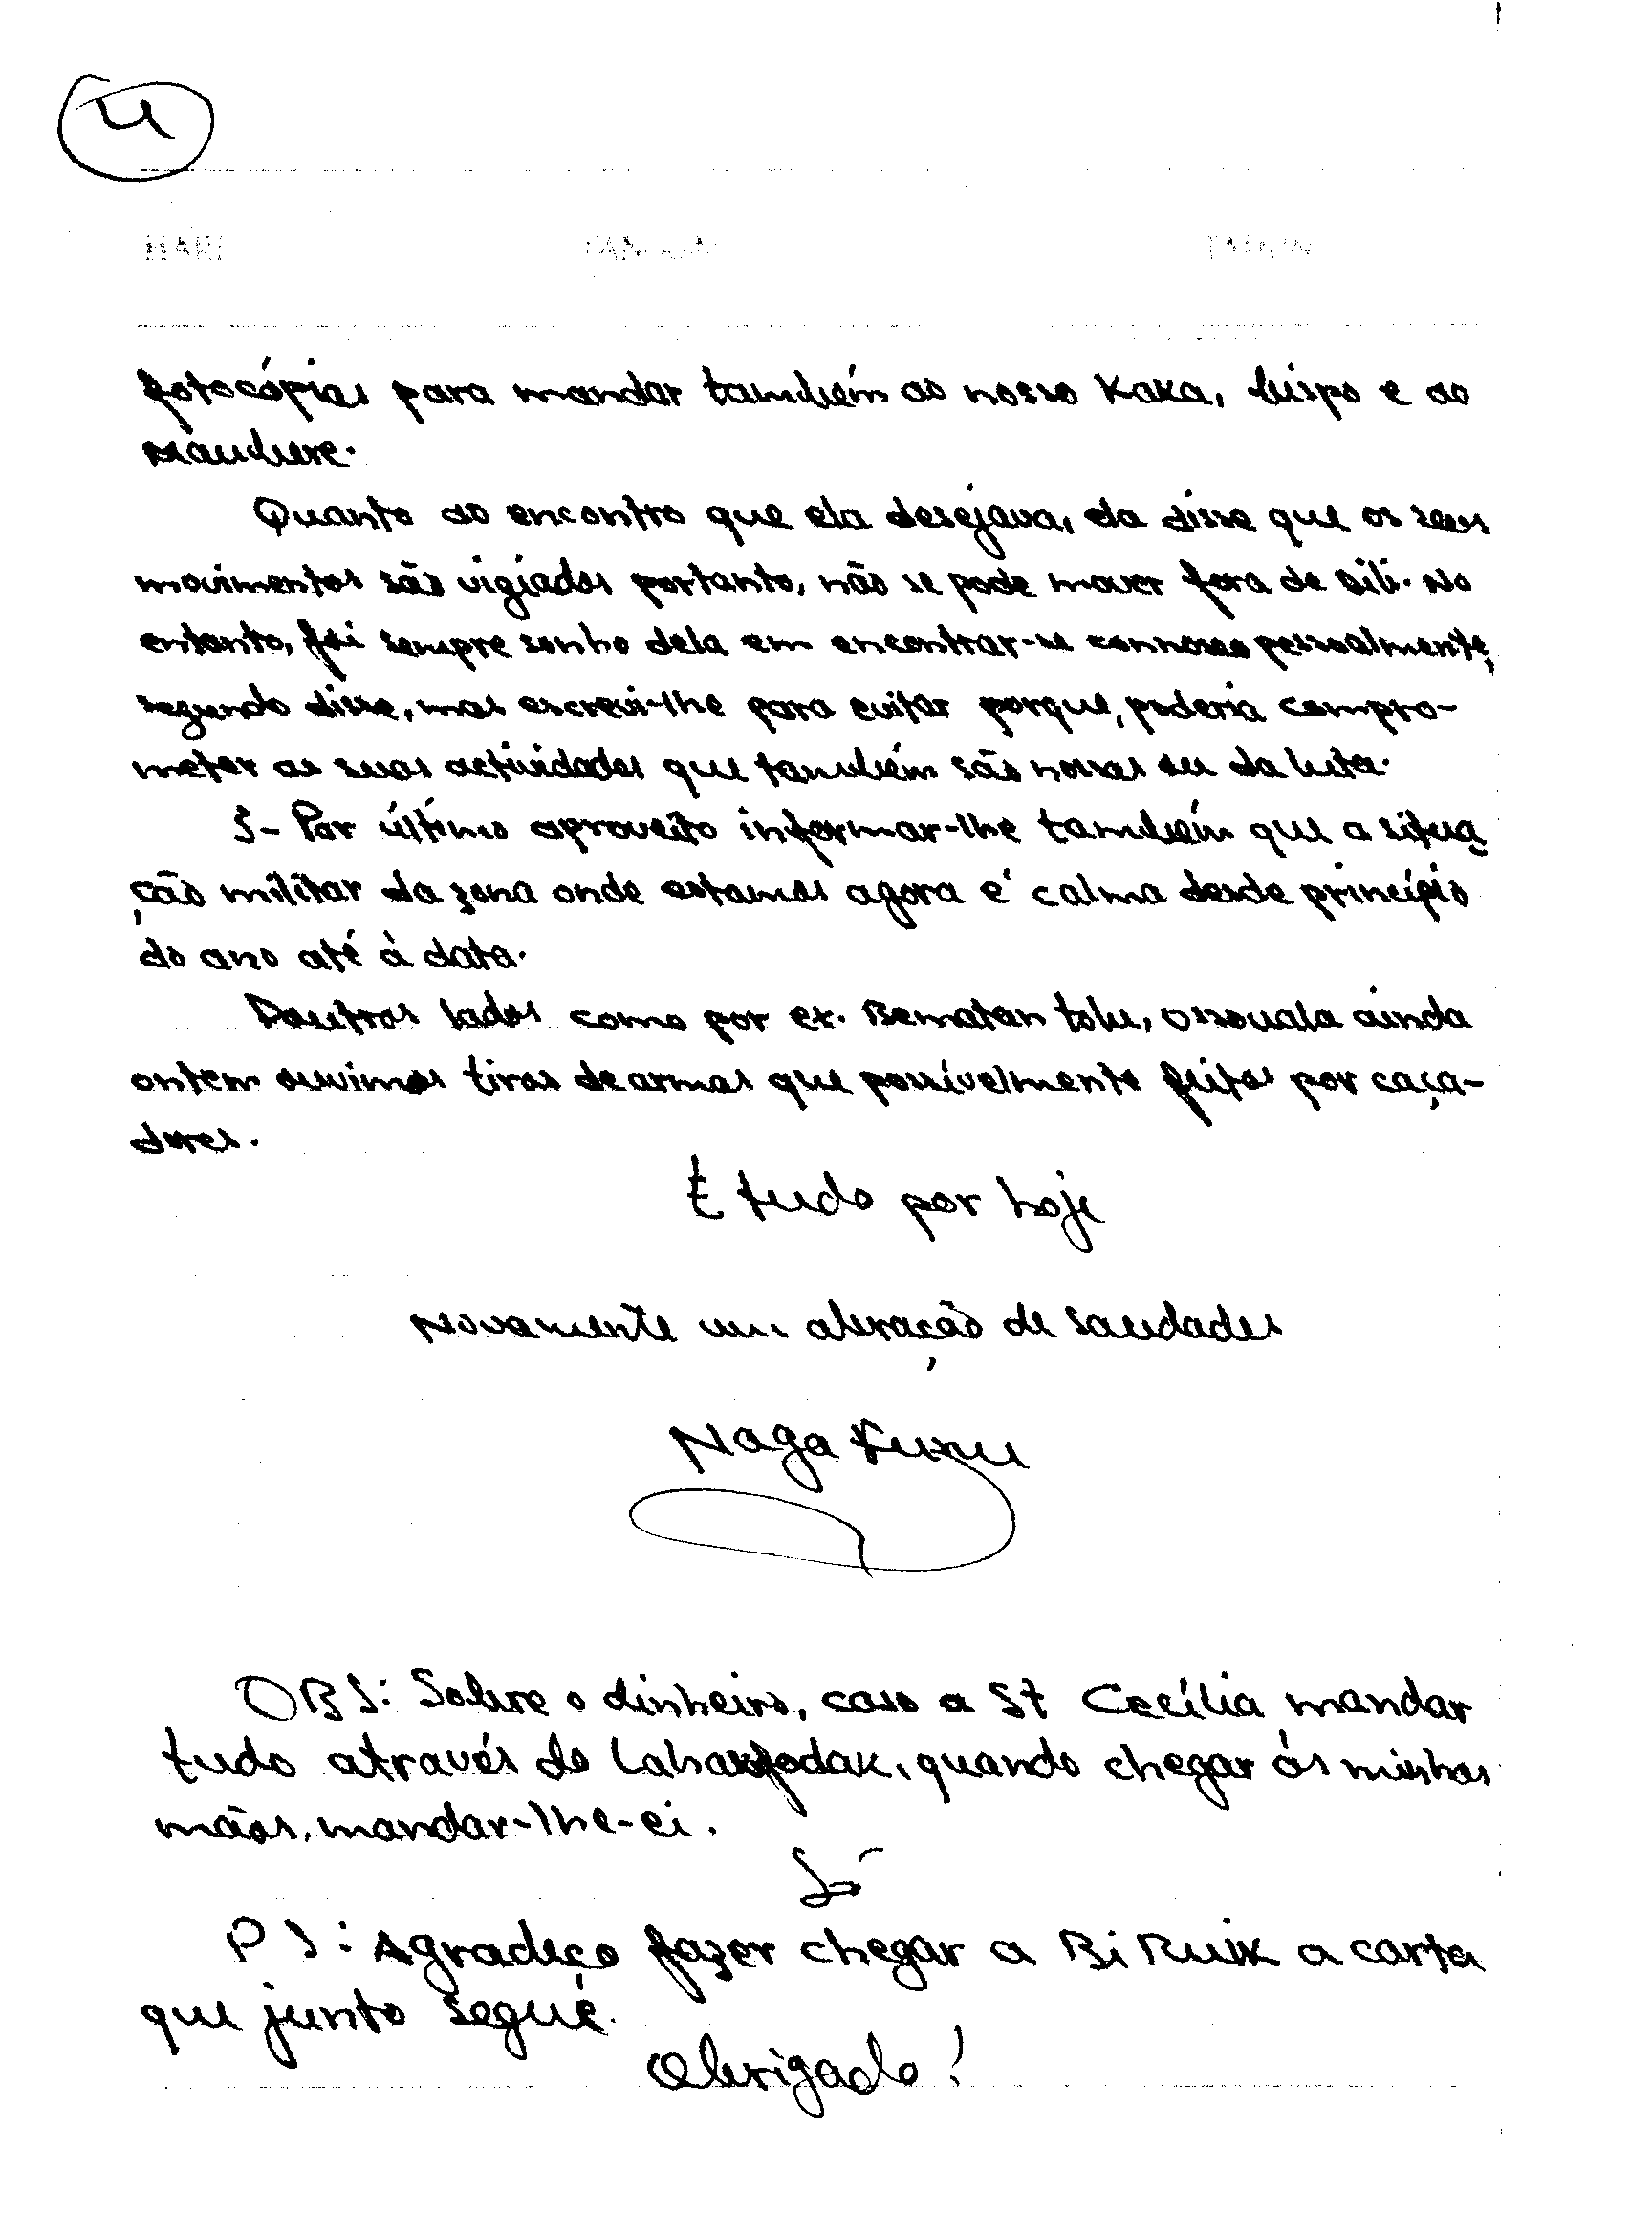 4
HARI TANGGAL
fotocópias para mandar também ao nosso Kaka, bispo e ao
Mauhere.
Quanto ao encontro que ela desejava, ela disse que os seus
movimentos são vigiados portanto, não se pode mover fora de Dili. No
entanto, foi sempre sonho dela em encontrar-se connosco pessoalmente,
segundo disse, mas escrevi-lhe para evitar porque, poderia compro-
meter as suas actividades que também são nossas ou da luta.
5- Por último aproveito informar-lhe também que a situa
ção militar da zona onde estamos agora é calma desde princípio
do ano até à data.
Doutros lados como por ex. Bematan tolu, Ossouala ainda
ontem ouvimos tiros de armas que possívelmente feitos por caça-
dores.
É tudo por hoje
Novamente um abração de saudades
Naga Kuru
OBS: Sobre o dinheiro, caso a St Cecília mandar
tudo através do Lahakfodak, quando chegar às minhas
mãos, mandar-lhe-ei.
Só
PS: Agradeço fazer chegar a Bi Ruik a carta
que junto segue.
Obrigado!